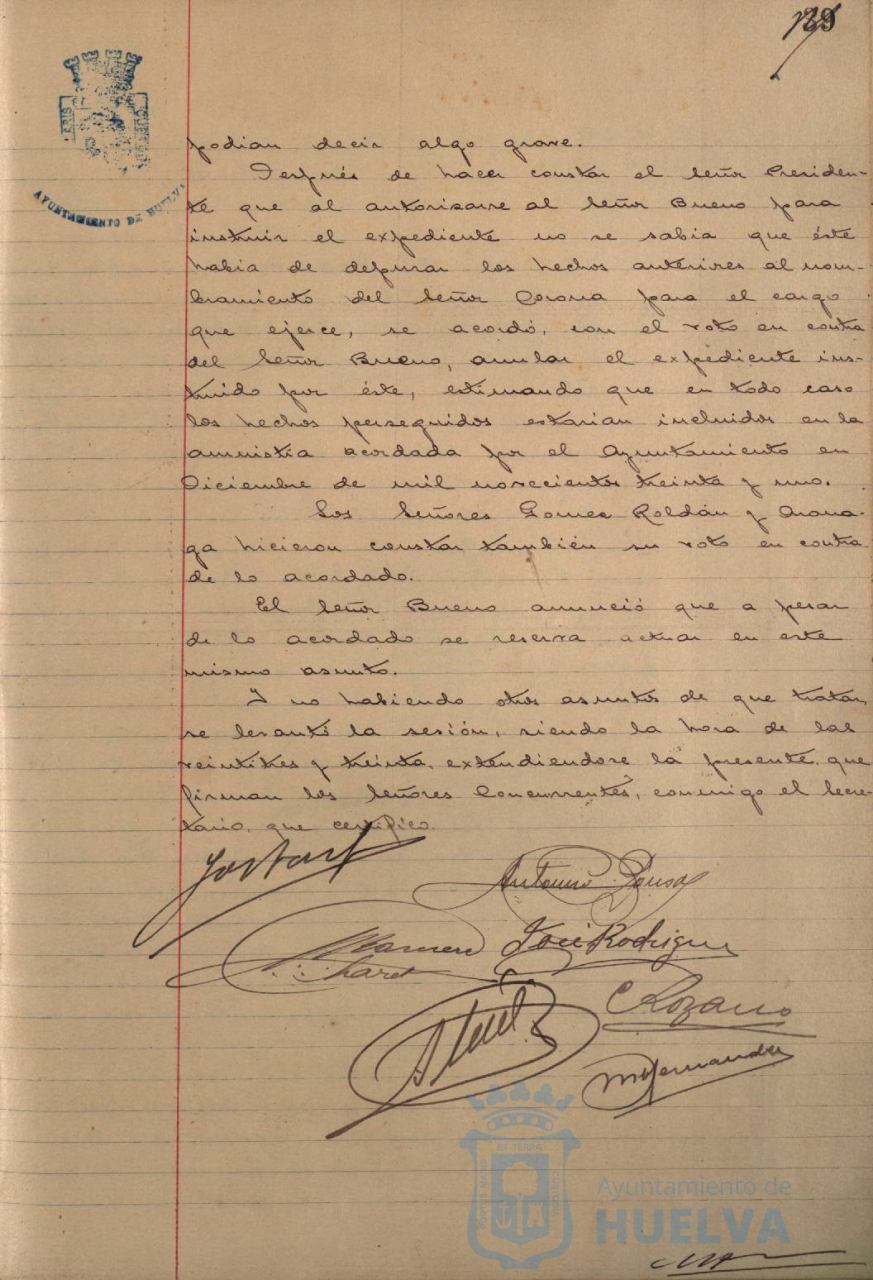 189
AYUNTAMIENTO DE HUELVA
podian decir algo grave.
Después de hacer constar el Señor Presiden-
te que al autorizarse al Señor Bueno para
instruir el expediente no se sabia que éste
habia de depurar los hechos anteriores al nom-
bramiento del Señor Corona para el cargo
que ejerce, se acordó, con el voto en contra
del Señor Bueno, anular el expediente ins-
truido por éste, estimando que en todo caso
los hechos perseguidos estarian incluidos en la
amnistia acordada por el Ayuntamiento en
Diciembre de mil novecientos treinta y uno.
Los Señores Gomez Roldán y Arana-
ga hicieron constar también su voto en contra
de lo acordado.
El Señor Bueno anunció que a pesar
de lo acordado se reserva actuar en este
mismo asunto.
Y no habiendo otros asuntos de que tratar,
se levantó la sesión, siendo la hora de las
veintitres y treinta, extendiendose la presente, que
firman los Señores Concurrentes, conmigo el Secre-
tario, que certifico.
Antonio Pousa
José Rodrigue
Charet
C Rozano
M Hernandez
Ayuntamiento de
HUELVA